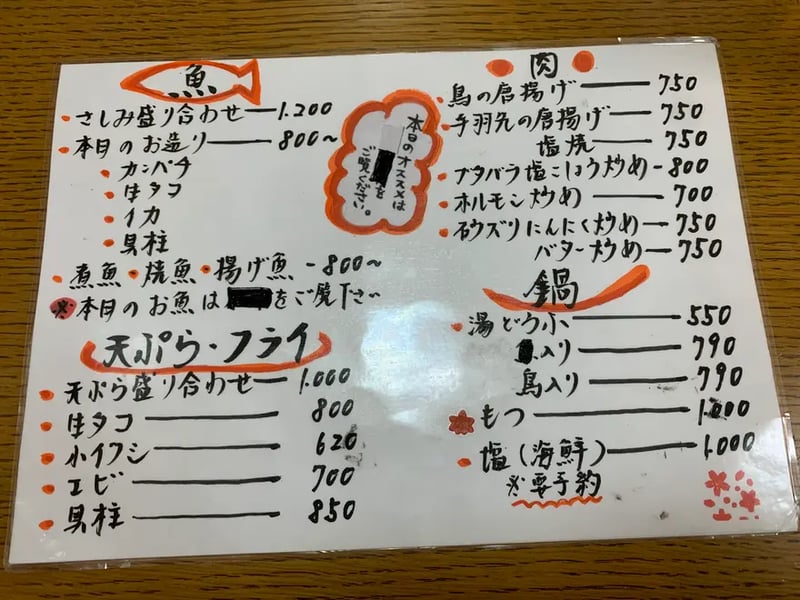 魚
さしみ盛り合わせ 1.200
本日のお造り 800~
カンパチ
生タコ
イカ
貝柱
煮魚・焼魚・揚げ魚 - 800~
※本日のお魚は をご覧下さい
天ぷら・フライ
天ぷら盛り合わせ 1.000
生タコ 800
小イワシ 620
エビ 700
貝柱 850
本日のオススメは
を
ご覧ください。
肉
鳥の唐揚げ 750
手羽先の唐揚げ 750
塩焼 750
ブタバラ塩こしょう炒め 800
ホルモン炒め 700
砂ズリにんにく炒め 750
バター炒め 750
鍋
湯どうふ 550
入り 790
鳥入り 790
もつ 1.000
塩(海鮮) 1.000
※要予約